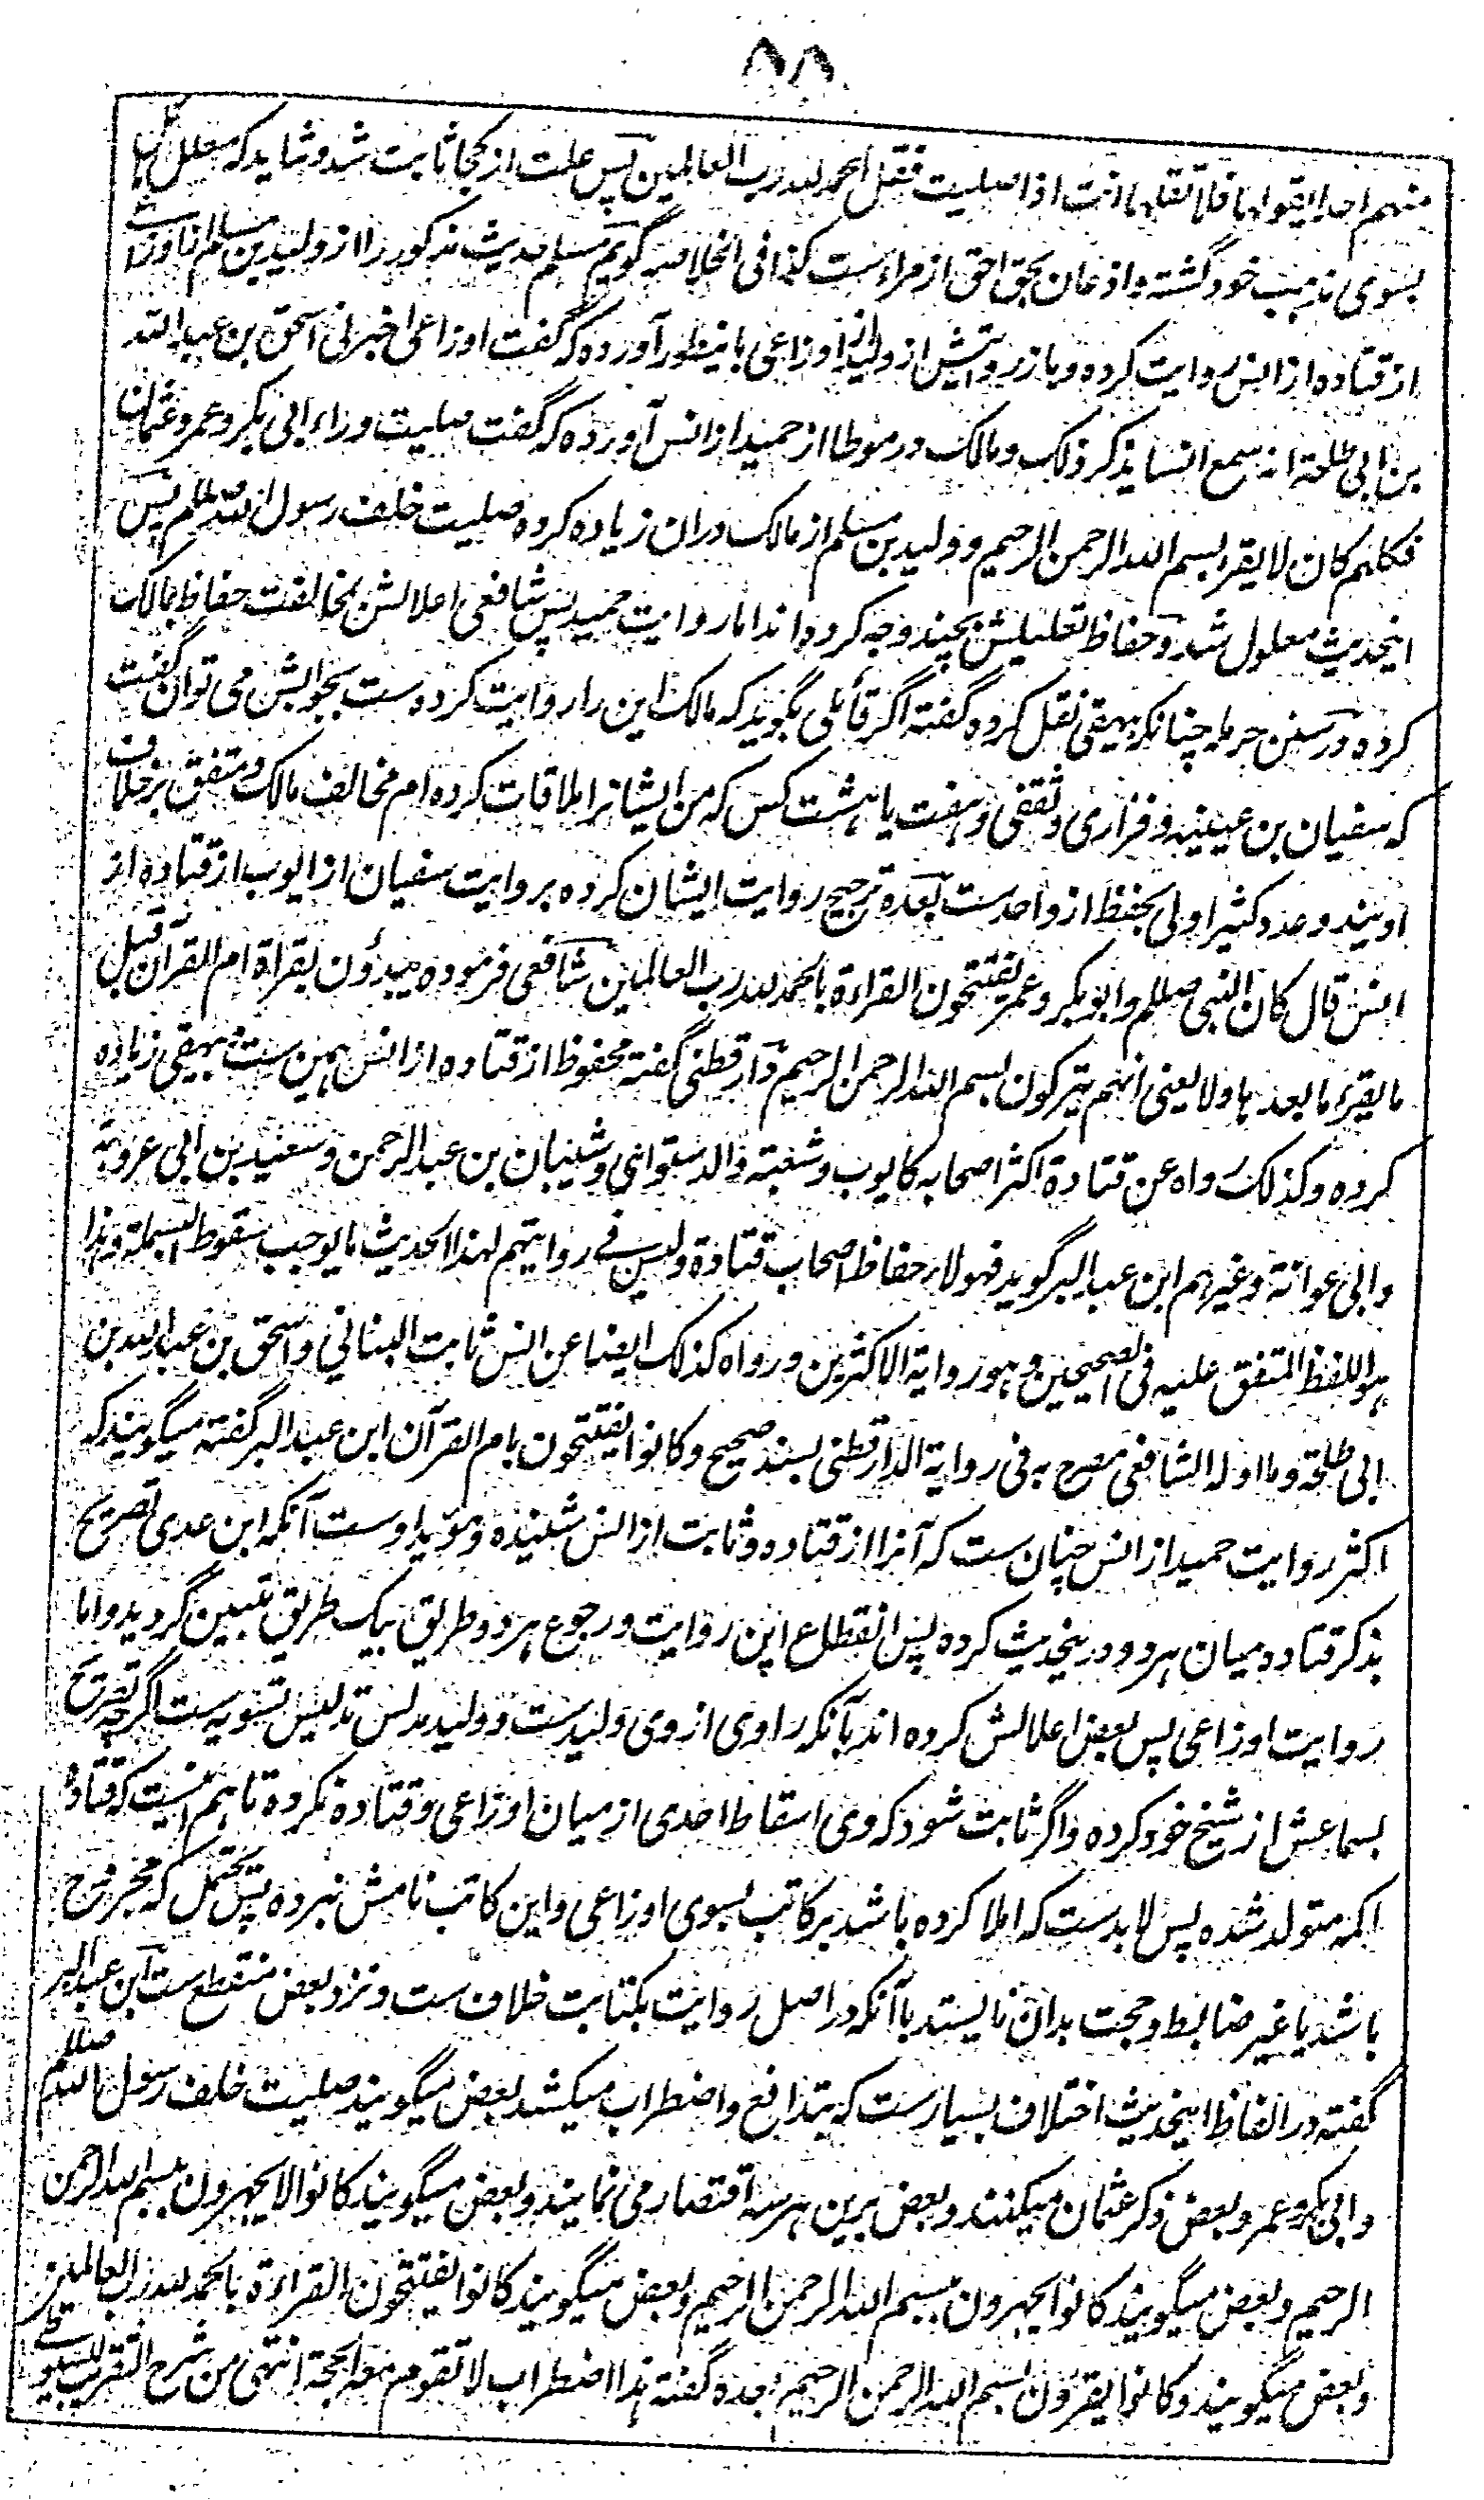 ۵۸
منهم احدا یقولها فلا تقلها انت اذا صلیت فقل الحمد لله رب العالمین پس علت از کجا ثابت شد و شاید که معلل مائل
بسوی مذهب خود گشته و اذعان بحق احق از مراء ست کذا فی الخلاصه گویم مسلم حدیث مذکور را از ولید بن مسلم از اوزاعی
از قتاده از انس روایت کرده و باز روایتش از ولید از اوزاعی باینطور آورده که گفت اوزاعی اخبرنی اسحق بن عبد الله
بن ابی طلحة انه سمع انسا یذکر ذلک و مالک در موطا از حمید از انس آورده که گفت صلیت وراء ابی بکر و عمر و عثمان
فکلهم کان لا یقرء بسم الله الرحمن الرحیم و ولید بن مسلم از مالک دران زیاده کرده صلیت خلف رسول الله صللم پس
اینحدیث معلول شد و حفاظ تعلیلش بچند وجه کرده اند اما روایت حمید پس شافعی اعلالش بمخالفت حفاظ بمالک
کرده در سنن حرمله چنانکه بیهقی نقل کرده گفته اگر قائلی بگوید که مالک این را روایت کرده ست بجوابش می توان گفت
که سفیان بن عیینه و فزاری و ثقفی و هفت یا هشت کس که من ایشانرا ملاقات کرده ام مخالف مالک و متفق بر خلاف
اویند و عدد کثیر اولی بحفظ از واحد ست بعده ترجیح روایت ایشان کرده بروایت سفیان از ایوب از قتاده از
انس قال کان النبی صللم و ابو بکر و عمر یفتتحون القراءة بالحمد لله رب العالمین شافعی فرموده یبدؤن بقراءة ام القرآن قبل
ما یقرء ما بعدها ولا یعنی انهم یترکون بسم الله الرحمن الرحیم دارقطنی گفته محفوظ از قتاده از انس همین ست بیهقی زیاده
کرده و کذلک رواه عن قتادة اکثر اصحابه کایوب و شعبة و الدستوائی و شیبان بن عبد الرحمن و سعید بن ابی عروبة
و ابی عوانة و غیرهم ابن عبد البر گوید فهولاء حفاظ اصحاب قتادة و لیس فی روایتهم لهذا الحدیث ما یوجب سقوط البسملة و هذا
هو اللفظ المتفق علیه فی الصحیحین و هو روایة الاکثرین و رواه کذلک ایضا عن انس ثابت البنانی و اسحق بن عبد الله بن
ابی طلحة و ما اوله الشافعی مصرح به فی روایة الدارقطنی بسند صحیح و کانوا یفتتحون بام القرآن ابن عبد البر گفته میگویند که
اکثر روایت حمید از انس چنان ست که آنرا از قتاده و ثابت از انس شنیده و موید اوست آنکه ابن عدی تصریح
بذکر قتاده میان هر دو درینحدیث کرده پس انقطاع این روایت و رجوع هر دو طریق بیک طریق متبین گردید و اما
روایت اوزاعی پس بعض اعلالش کرده اند بآنکه راوی از وی ولید ست و ولید مدلس تدلیس تسویه ست اگرچه تصریح
بسماعش از شیخ خود کرده و اگر ثابت شود که وی اسقاط احدی از میان اوزاعی و قتاده نکرده تا هم آنست که قتاده
اکمه متولد شده پس لابد ست که املا کرده باشد بر کاتب بسوی اوزاعی و این کاتب نامش نبرده پس یحتمل که مجروح
باشد یا غیر ضابط و حجت بدان نایستد با آنکه در اصل روایت بکتابت خلاف ست و نزد بعض منقطع ست ابن عبد البر
گفته در الفاظ اینحدیث اختلاف بسیار ست که بتدافع و اضطراب میکشد بعض میگویند صلیت خلف رسول الله صللم
و ابی بکر و عمر و بعض ذکر عثمان میکنند و بعض برین هر سه اقتصار می نمایند و بعض میگویند کانوا لا یجهرون ببسم الله الرحمن
الرحیم و بعض میگویند کانوا یجهرون ببسم الله الرحمن الرحیم و بعض میگویند کانوا یفتتحون القراءة بالحمد لله رب العالمین
و بعض میگویند و کانوا یقرؤن بسم الله الرحمن الرحیم بعده گفته هذا اضطراب لا تقوم معه الحجة انتهی من شرح التقریب للسیوطی